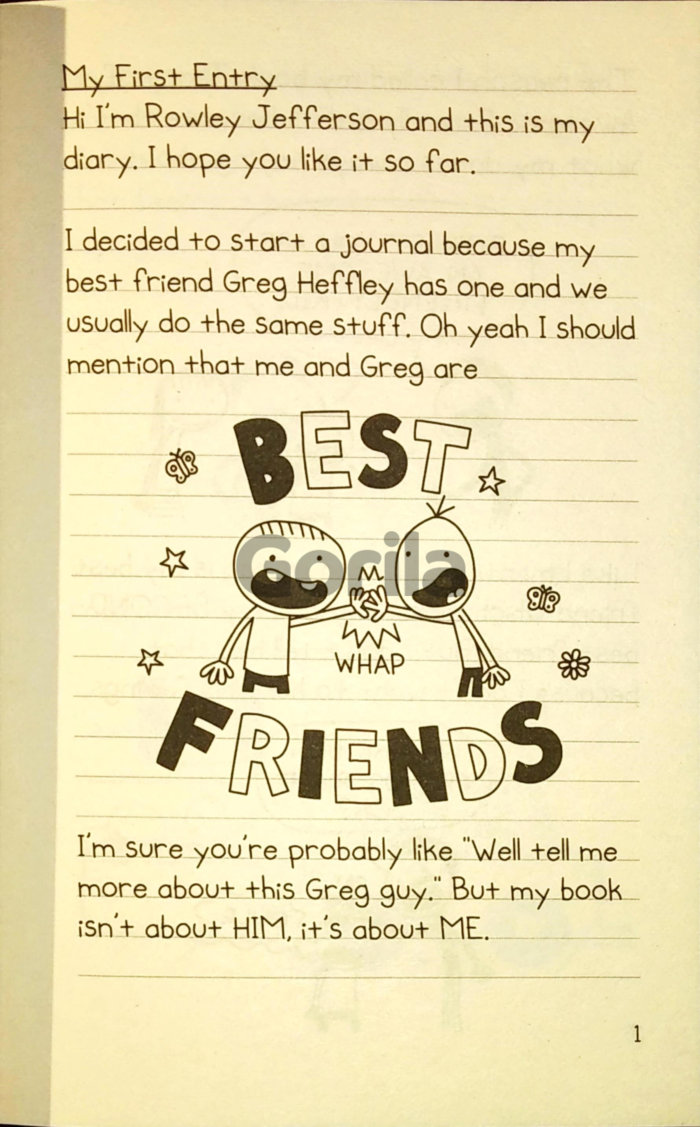 My First Entry
Hi I'm Rowley Jefferson and this is my
diary. I hope you like it so far.
I decided to start a journal because my
best friend Greg Heffley has one and we
usually do the same stuff. Oh yeah I should
mention that me and Greg are
BEST
Gorila
WHAP
FRIENDS
I'm sure you're probably like "Well tell me
more about this Greg guy." But my book
isn't about HIM, it's about ME.
1